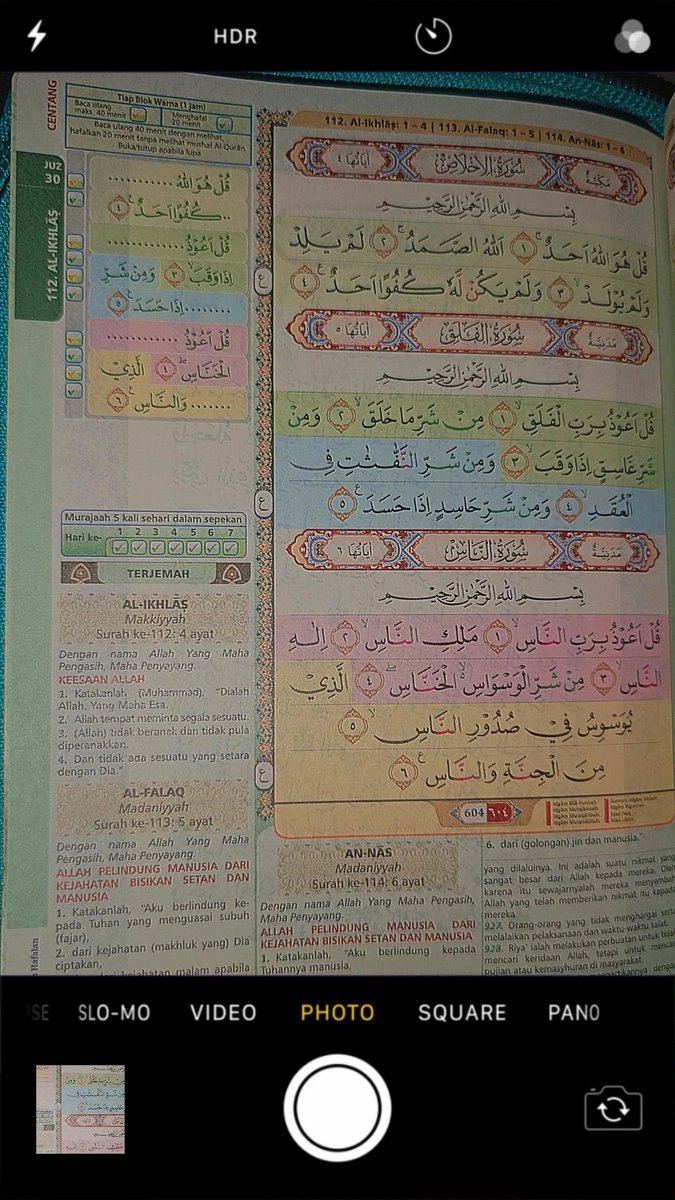 HDR
CENTANG
Tiap Blok Warna (1 Jam)
Baca ulang
maks. 40 menit
Menghafal
20 menit
Baca ulang 40 menit dengan melihat,
hafalkan 20 menit tanpa melihat mushaf Al-Qurān.
Buka/tutup apabila lupa
JUZ
30
112. AL-IKHLĀṢ
قُلْ هُوَ اللّٰهُ ...........
..كُفُوًا اَحَدٌ ࣖ ٤
قُلْ اَعُوْذُ ............
اِذَا وَقَبَۙ ٣ وَمِنْ شَرِّ
........اِذَا حَسَدَ ࣖ ٥
قُلْ اَعُوْذُ ...........
الْخَنَّاسِۖ ٤ الَّذِيْ
....... وَالنَّاسِ ࣖ ٦
Murajaah 5 kali sehari dalam sepekan
Hari ke- 1 2 3 4 5 6 7
TERJEMAH
AL-IKHLĀṢ
Makkiyyah
Surah ke-112: 4 ayat
Dengan nama Allah Yang Maha
Pengasih, Maha Penyayang.
KEESAAN ALLAH
1. Katakanlah (Muhammad), “Dialah
Allah, Yang Maha Esa.
2. Allah tempat meminta segala sesuatu.
3. (Allah) tidak beranak dan tidak pula
diperanakkan.
4. Dan tidak ada sesuatu yang setara
dengan Dia.”
AL-FALAQ
Madaniyyah
Surah ke-113: 5 ayat
Dengan nama Allah Yang Maha
Pengasih, Maha Penyayang.
ALLAH PELINDUNG MANUSIA DARI
KEJAHATAN BISIKAN SETAN DAN
MANUSIA
1. Katakanlah, “Aku berlindung ke-
pada Tuhan yang menguasai subuh
(fajar),
2. dari kejahatan (makhluk yang) Dia
ciptakan,
dari kejahatan malam apabila
Hafalan
112. Al-Ikhlāṣ: 1 – 4 | 113. Al-Falaq: 1 – 5 | 114. An-Nās: 1 – 6
مَكِّيَّةٌ سُوْرَةُ الْاِخْلَاصِ اٰيَاتُهَا ٤
بِسْمِ اللّٰهِ الرَّحْمٰنِ الرَّحِيْمِ
قُلْ هُوَ اللّٰهُ اَحَدٌۚ ١ اَللّٰهُ الصَّمَدُۚ ٢ لَمْ يَلِدْ
وَلَمْ يُوْلَدْۙ ٣ وَلَمْ يَكُنْ لَّهٗ كُفُوًا اَحَدٌ ࣖ ٤
مَدَنِيَّةٌ سُوْرَةُ الْفَلَقِ اٰيَاتُهَا ٥
بِسْمِ اللّٰهِ الرَّحْمٰنِ الرَّحِيْمِ
قُلْ اَعُوْذُ بِرَبِّ الْفَلَقِۙ ١ مِنْ شَرِّ مَا خَلَقَۙ ٢ وَمِنْ
شَرِّ غَاسِقٍ اِذَا وَقَبَۙ ٣ وَمِنْ شَرِّ النَّفّٰثٰتِ فِى
الْعُقَدِۙ ٤ وَمِنْ شَرِّ حَاسِدٍ اِذَا حَسَدَ ࣖ ٥
مَدَنِيَّةٌ سُوْرَةُ النَّاسِ اٰيَاتُهَا ٦
بِسْمِ اللّٰهِ الرَّحْمٰنِ الرَّحِيْمِ
قُلْ اَعُوْذُ بِرَبِّ النَّاسِۙ ١ مَلِكِ النَّاسِۙ ٢ اِلٰهِ
النَّاسِۙ ٣ مِنْ شَرِّ الْوَسْوَاسِ ەۙ الْخَنَّاسِۖ ٤ الَّذِيْ
يُوَسْوِسُ فِيْ صُدُوْرِ النَّاسِۙ ٥
مِنَ الْجِنَّةِ وَالنَّاسِ ࣖ ٦
ع
ع
ع
604 ٦٠٤
AN-NĀS
Madaniyyah
Surah ke-114: 6 ayat
Dengan nama Allah Yang Maha Pengasih,
Maha Penyayang.
ALLAH PELINDUNG MANUSIA DARI
KEJAHATAN BISIKAN SETAN DAN MANUSIA
1. Katakanlah, “Aku berlindung kepada
Tuhannya manusia,
6. dari (golongan) jin dan manusia.”
yang dilaluinya. Ini adalah suatu nikmat yang
sangat besar dari Allah kepada mereka. Oleh
karena itu sewajarnyalah mereka menyembah
Allah yang telah memberikan nikmat itu kepada
mereka.
927. Orang-orang yang tidak menghargai serta
melalaikan pelaksanaan dan waktu-waktu salat.
928. Riya' ialah melakukan perbuatan untuk tidak
mencari keridaan Allah, tetapi untuk mencari
pujian atau kemasyhuran di masyarakat.
SLO-MO VIDEO PHOTO SQUARE PANO